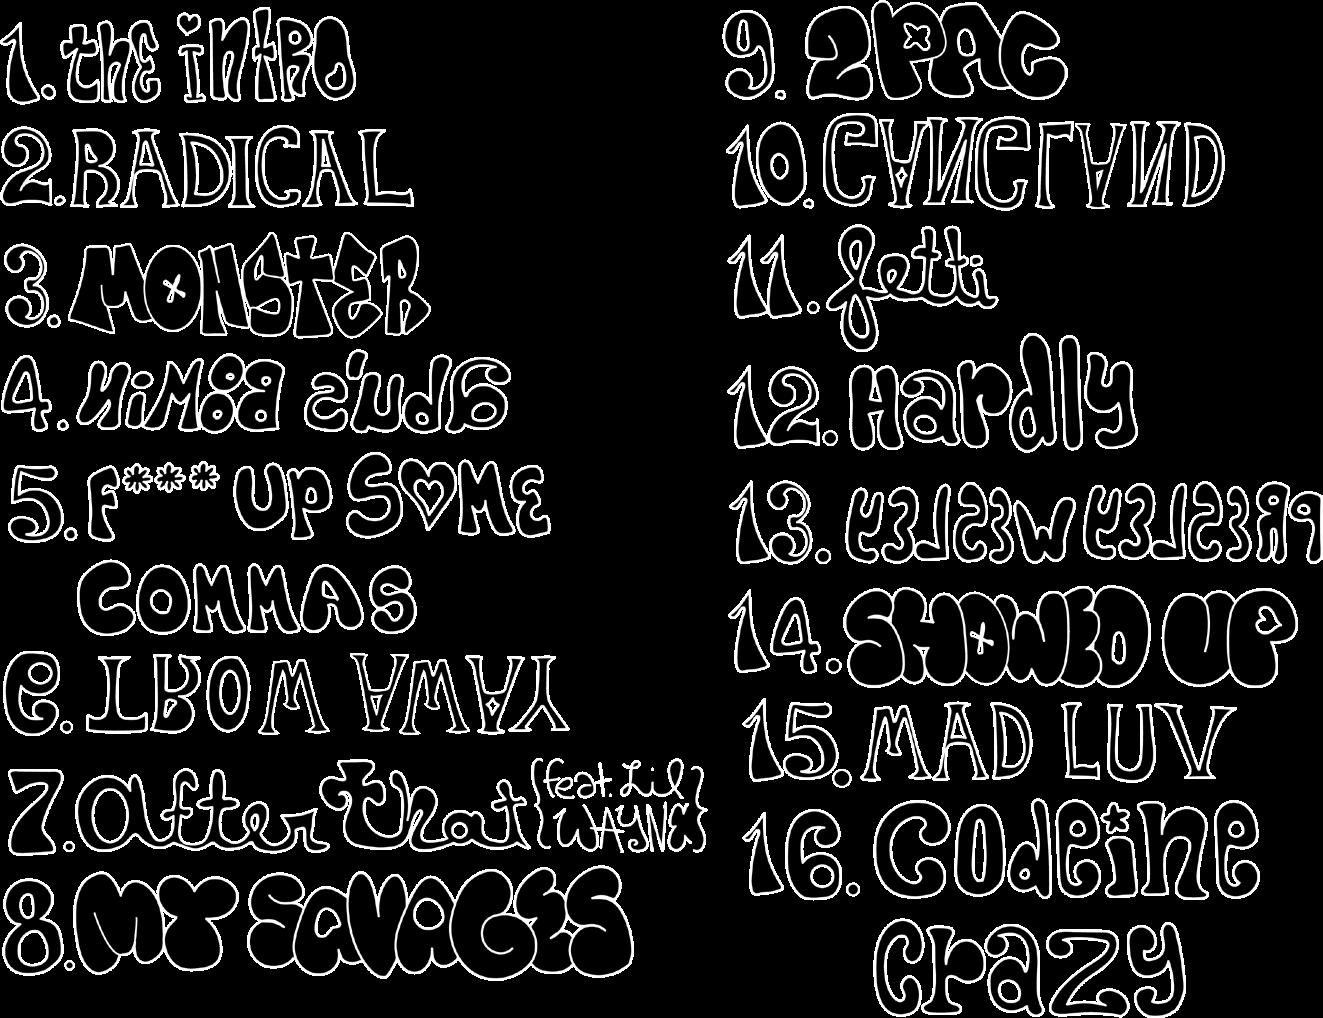 1. the intRO
2. RADICAL
3. MONSTER
4. abu's BOOMiN
5. F*** UP SOME
COMMAS
6. TROW AWAY
7. After That {feat. Lil WAYNE}
8. MY SAVAGES
9. 2PAC
10. GANGLAND
11. fetti
12. Hardly
13. WESLEY PRESLEY
14. SHOWED UP
15. MAD LUV
16. Codeine
Crazy